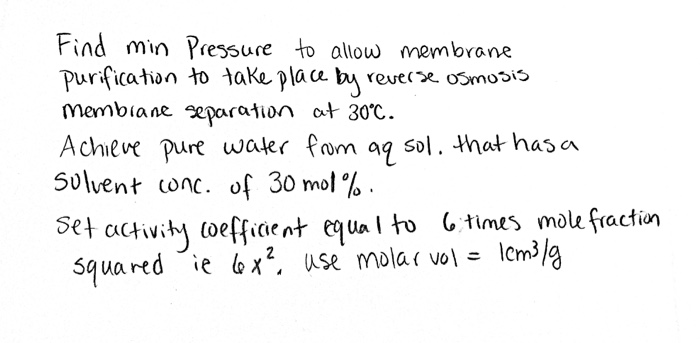 Find min Pressure to allow membrane
purification to take place by reverse osmosis
membrane separation at 30°C.
Achieve pure water from aq sol. that has a
solvent conc. of 30 mol%.
Set activity coefficient equal to 6 times mole fraction
squared ie 6x². use molar vol = 1cm³/g